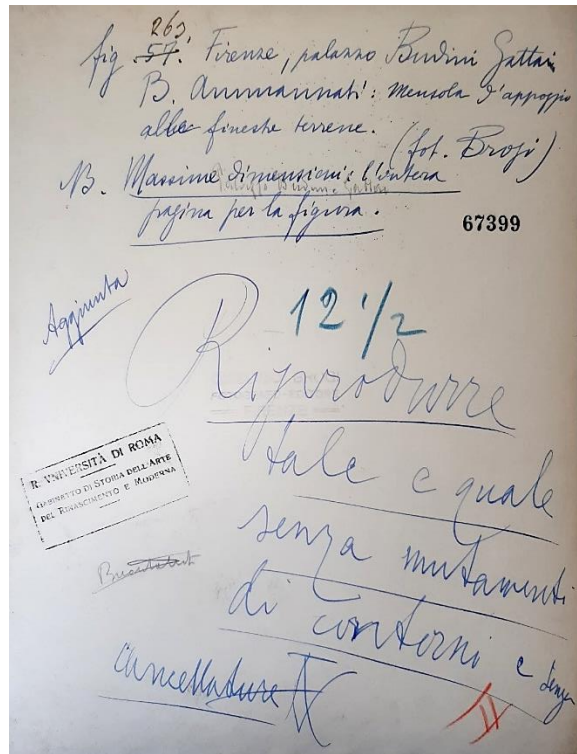 263
fig. 57. Firenze, palazzo Budini Gattai
B. Ammannati: Mensola d'appoggio
alle fineste terrene.
(fot. Brogi)
NB. Massime dimensioni: l'intera
pagina per la figura.
67399
Aggiunta
12 1/2
Riprodurre
tale e quale
senza mutamenti
di contorni e senza
cancellature
R. UNIVERSITÀ DI ROMA
GABINETTO DI STORIA DELL'ARTE
DEL RINASCIMENTO E MODERNA
II